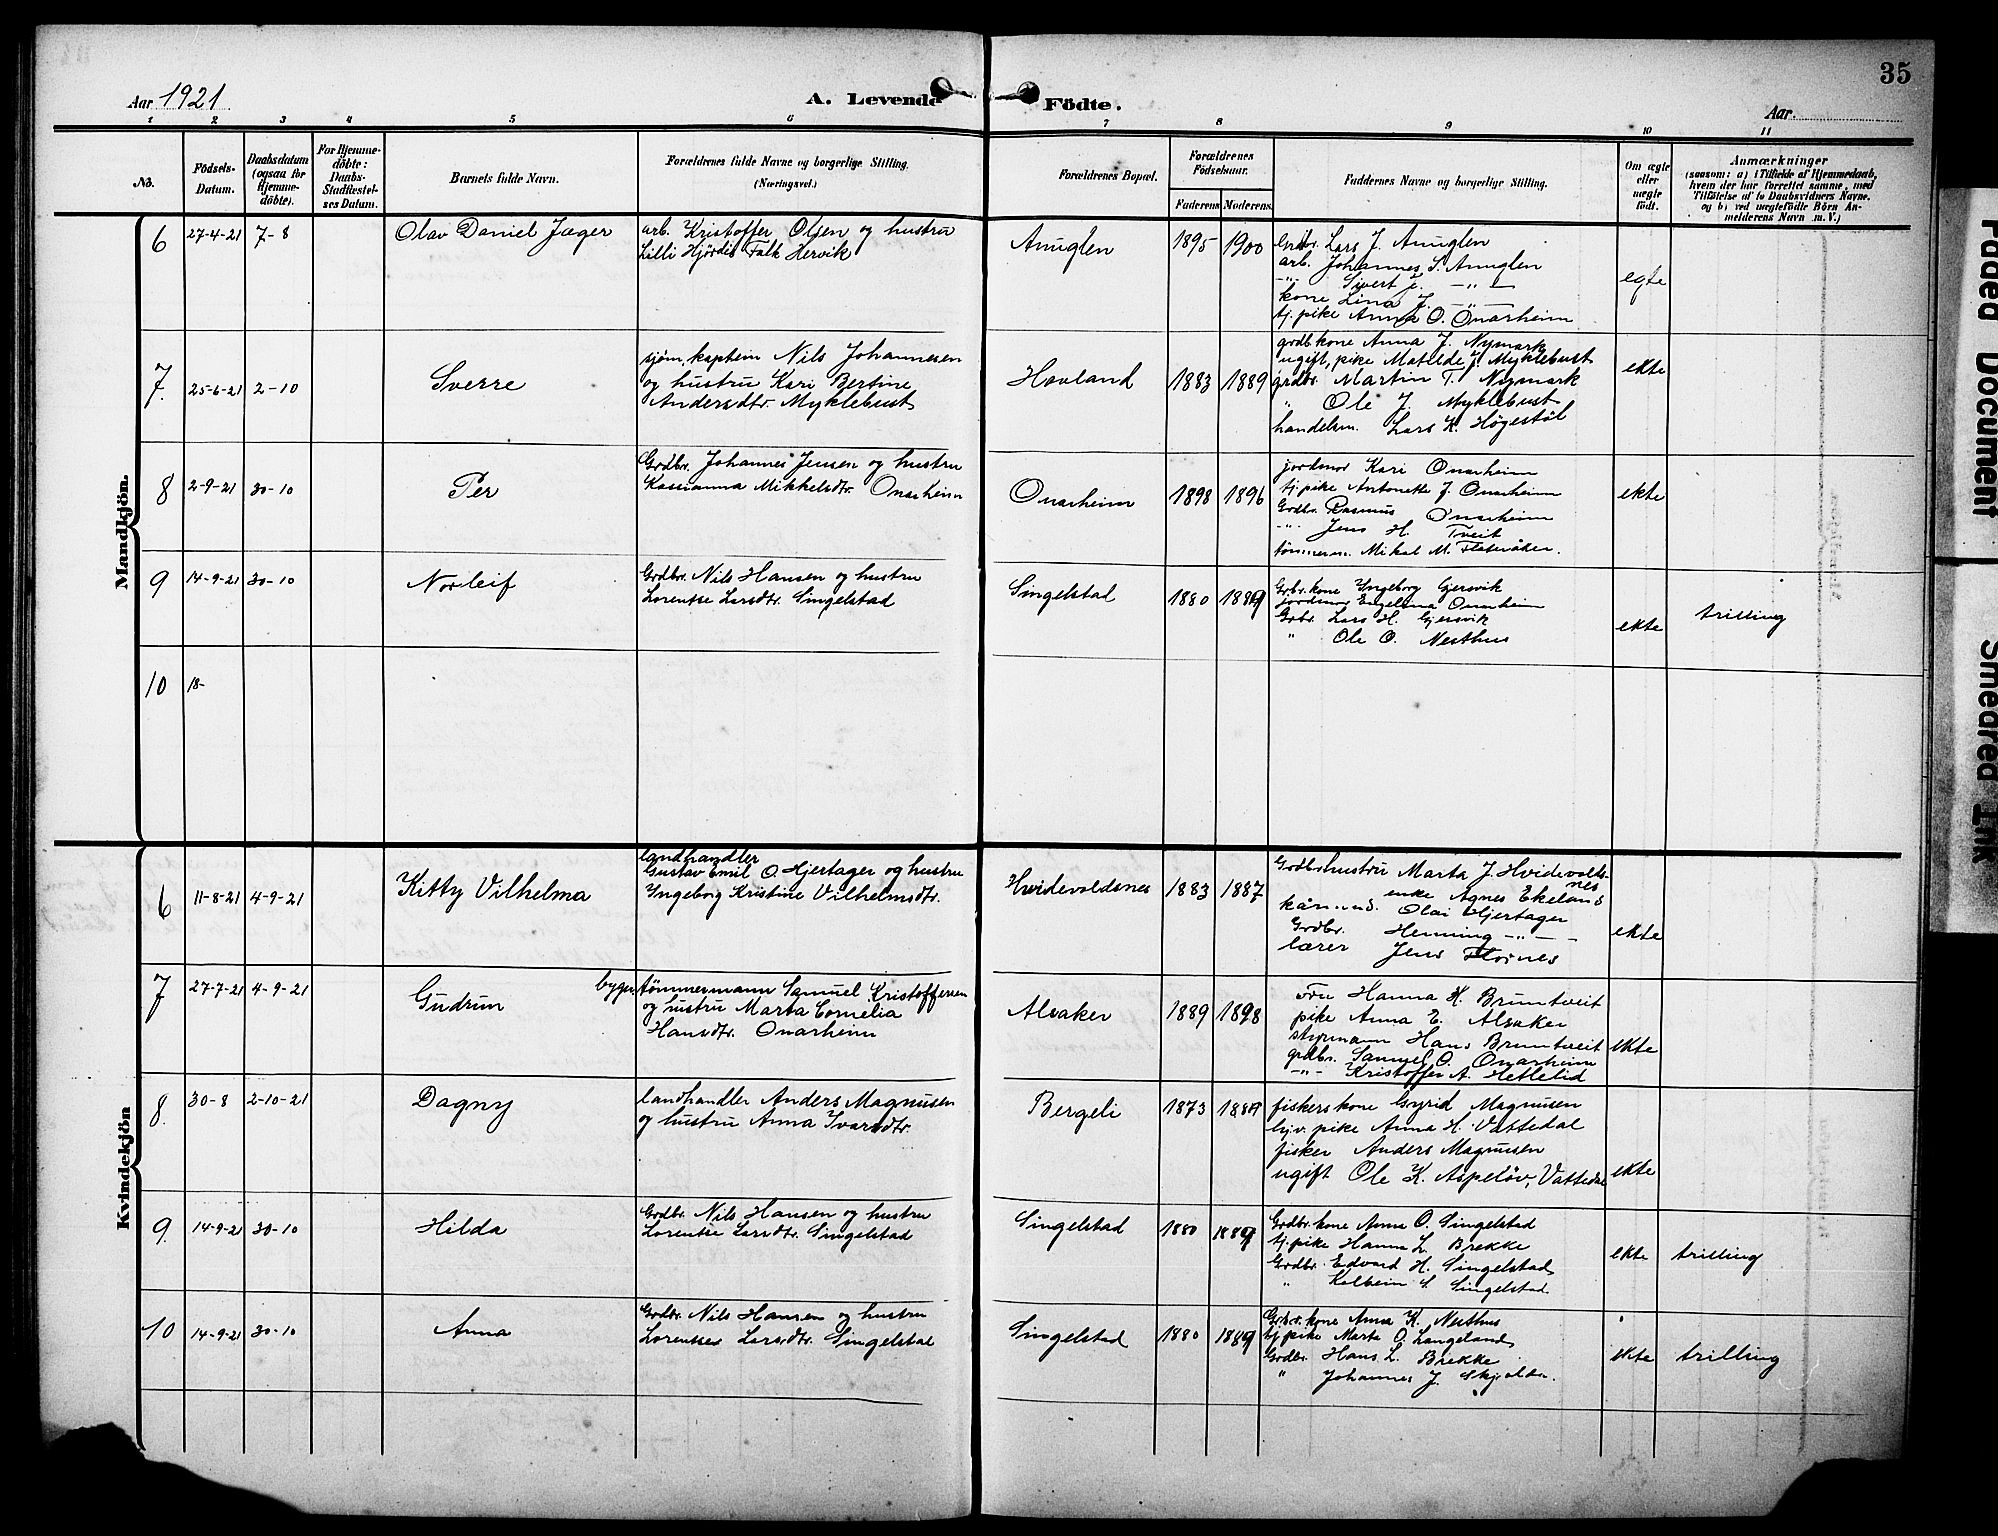 35
Aar 1921
A. Levende Födte.
Aar
1 2 3 4 5 6 7 8 9 10 11
No.
Födsels-Datum.
Daabsdatum (ogsaa for Hjemme-döbte).
For Hjemme-döbte: Daabs-Stadfæstel-ses Datum.
Barnets fulde Navn.
Forældrenes fulde Navne og borgerlige Stilling.
(Næringsvei.)
Forældrenes Bopæl.
Forældrenes Födselsaar.
Faderens Moderens
Faddernes Navne og borgerlige Stilling.
Om ægte eller uægte födt.
Anmærkninger
(saasom: a) i Tilfælde af Hjemmedaab, hvem der har forrettet samme, med Tilföielse af to Daabsvidners Navne, og b) ved uægtefödte Börn An-melderens Navn m. V.)
Mandkjön.
6 27-4-21 7-8 Olav Daniel Jæger
arb. Kristoffer Olsen og hustru
Lilli Hjördis Falk Hervik
Anuglen 1895 1900
Grdbr. Lars J. Anuglen
arb. Johannes S. Anuglen
-"- Sivert J. -"-
kone Lina J. -"-
tj.pike Anna O. Onarheim
egte
7. 25-6-21 2-10 Sverre
sjøm. kaptein Nils Johannesen
og hustru Kari Bertine
Andersdtr. Myklebust
Hovland 1883 1889
grdb.kone Anna J. Nymark
ugift, pike Matilde J. Myklebust
grdbr. Martin T. Nymark
" Ole J. Myklebust
handelsm. Lars K. Høgestøl
ekte
8 2-9-21 30-10 Per
Grdbr. Johannes Jensen og hustru
Kassianna Mikkelsdtr. Onarheim
Onarheim 1898 1896
jordmor Kari Onarheim
tj.pike Antonette J. Onarheim
Grdbr. Rasmus Onarheim
-"- Jens H. Tveit
tömmerm. Mikal M. Flateråker.
ekte
9 14-9-21 30-10 Norleif
Grdbr. Nils Hansen og hustru
Lorentse Larsdtr. Singelstad
Singelstad 1880 1889
Grbr.kone Yngeborg Gjersvik
jordmor Engelina Onarheim
Grbr. Lars H. Gjersvik
" Ole O. Nesthus
ekte trilling
10 18-
Kvindekjön
6 11-8-21 4-9-21 Kitty Vilhelma
landhandler
Gustav Emil O. Hjertager og hustru
Yngeborg Kristine Vilhelmsdtr.
Hvidevoldsnes 1883 1887
Grdbrhustru Marta J. Hvidevolds-
nes
enke Agnes Ekeland
kårmand. Olai Hjertager
Grdbr. Henning -"-
lærer Jens Flornes
ekte
7 27-7-21 4-9-21 Gudrun
bygn. tömmermann Samuel Kristoffersen
og hustru Marta Cornelia
Hansdtr. Onarheim
Alsaker 1889 1898
Fru Hanna K. Bruntveit
pike Anna E. Alsaker
styrmann Hans Bruntveit
grdbr. Samuel O. Onarheim
-"- Kristoffer A. Hetletid
ekte
8. 30-8 2-10-21 Dagny
landhandler Anders Magnusen
og hustru Anna Ivarsdtr.
Bergeli 1873 1889
fiskerskone Gyrid Magnusen
hjv. pike Anna H. Vattedal
fisker Anders Magnusen
ugift Ole K. Aspelöv, Vattedal
ekte
9. 14-9-21 30-10 Hilda
Grdbr. Nils Hansen og hustru
Lorentse Larsdtr. Singelstad
Singelstad 1880 1889
Grdbr.kone Anna O. Singelstad
tj.pike Hanna L. Brekke
Grdbr. Edvard H. Singelstad
" Kolbein S. Singelstad
ekte trilling
10 14-9-21 30-10 Anna
Grdbr. Nils Hansen og hustru
Lorentse Larsdtr. Singelstad
Singelstad 1880 1889
Grbr.kone Anna K. Nesthus
tj.pike Marta O. Langeland
Grdbr. Hans L. Brekke
" Johannes J. Skjelde.
ekte trilling
Faded Document
Smeared Ink